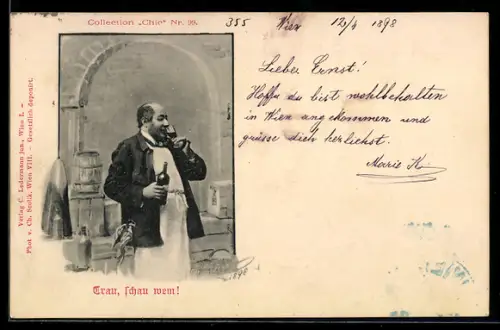 Collection „Chic“ Nr. 99.
355
Wien 12/4 1898
Lieber Ernst!
Hoffe du bist wohlbehalten
in Wien angekommen und
grüsse dich herzlichst.
Marie K.
Verlag C. Ledermann jun., Wien I. –
Phot. v. Ch. Scolik, Wien VIII. – Gesetzlich deponirt.
1898
Trau, schau wem!